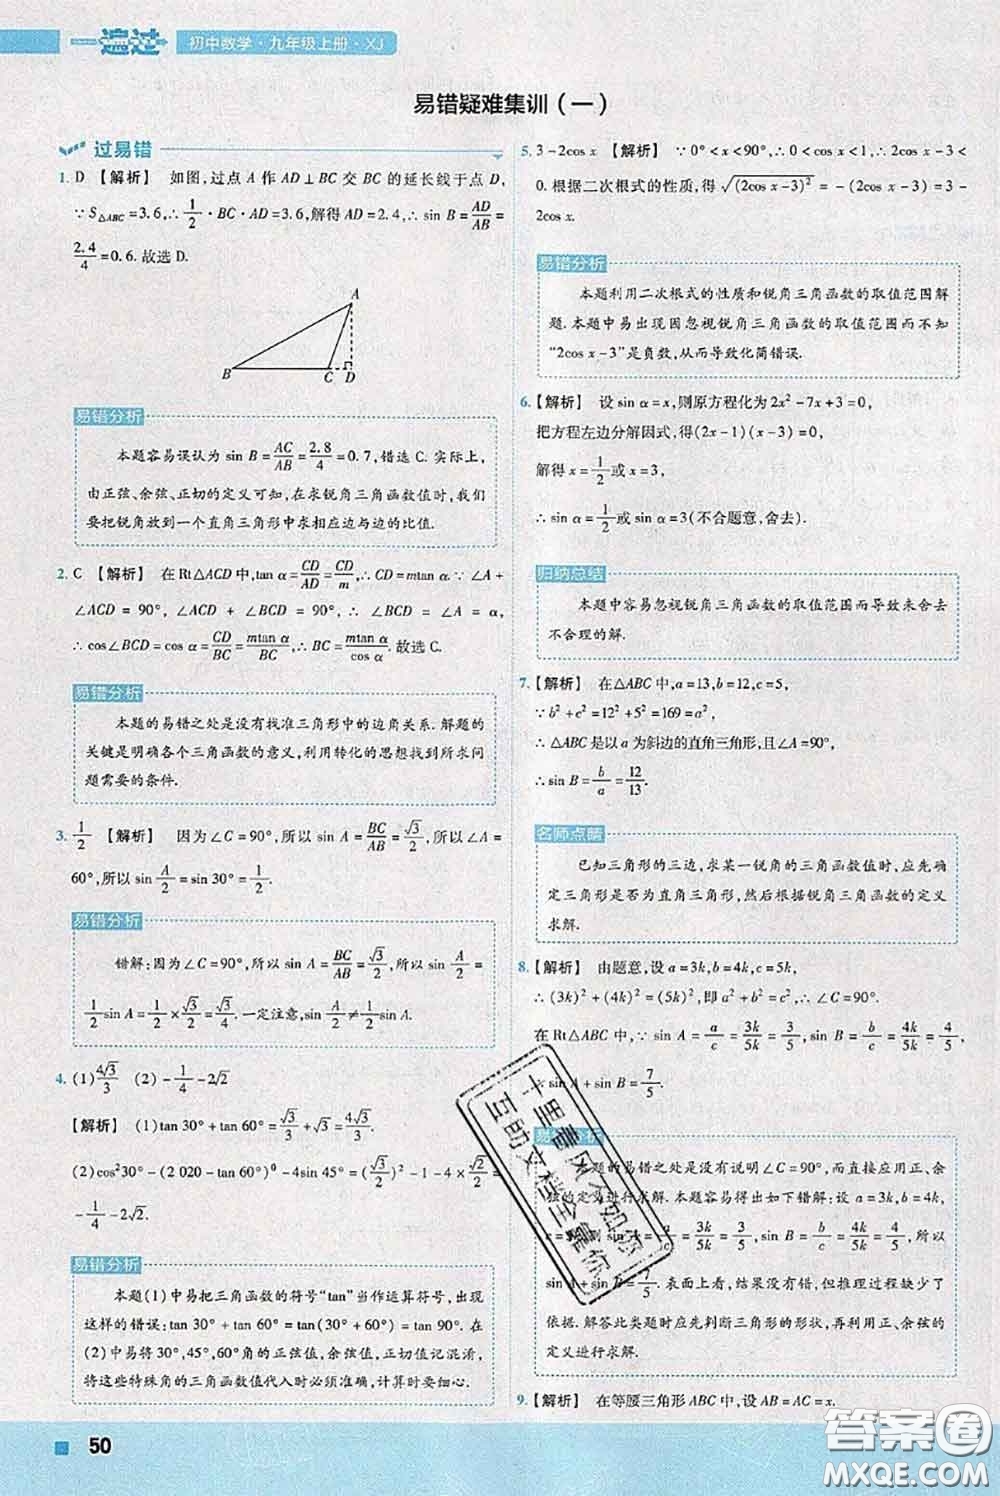 一遍过
初中数学·九年级上册·XJ
易错疑难集训（一）
过易错
1. D 【解析】 如图,过点 A 作 AD⊥BC 交 BC 的延长线于点 D,
∵S△ABC=3.6,∴1/2·BC·AD=3.6,解得 AD=2.4,∴sin B=AD/AB=
2.4/4=0.6.故选 D.
A
B C D
易错分析
本题容易误认为 sin B=AC/AB=2.8/4=0.7,错选 C.实际上,
由正弦、余弦、正切的定义可知,在求锐角三角函数值时,我们
要把锐角放到一个直角三角形中求相应边与边的比值.
2. C 【解析】 在 Rt△ACD 中,tan α=CD/AD=CD/m,∴CD=mtan α.∵∠A+
∠ACD=90°,∠ACD+∠BCD=90°,∴∠BCD=∠A=α,
∴cos∠BCD=cos α=CD/BC=mtan α/BC,∴BC=mtan α/cos α.故选 C.
易错分析
本题的易错之处是没有找准三角形中的边角关系.解题的
关键是明确各个三角函数的意义,利用转化的思想找到所求问
题需要的条件.
3. 1/2 【解析】 因为∠C=90°,所以 sin A=BC/AB=√3/2,所以∠A=
60°,所以 sin A/2=sin 30°=1/2.
易错分析
错解:因为∠C=90°,所以 sin A=BC/AB=√3/2,所以 sin A/2=
1/2 sin A=1/2×√3/2=√3/4.一定注意,sin A/2≠1/2 sin A.
4. (1)4√3/3 (2)-1/4-2√2
【解析】 (1)tan 30°+tan 60°=√3/3+√3=4√3/3.
(2)cos²30°-(2 020-tan 60°)⁰-4sin 45°=(√3/2)²-1-4×√2/2=
-1/4-2√2.
易错分析
本题(1)中易把三角函数的符号“tan”当作运算符号,出现
这样的错误:tan 30°+tan 60°=tan(30°+60°)=tan 90°.在
(2)中易将 30°,45°,60°的正弦值,余弦值,正切值记混淆,
将这些特殊角的三角函数值代入时必须正确,计算时要细心.
5. 3-2cos x 【解析】 ∵0°<x<90°,∴0<cos x<1,∴2cos x-3<
0.根据二次根式的性质,得√(2cos x-3)²=-(2cos x-3)=3-
2cos x.
易错分析
本题利用二次根式的性质和锐角三角函数的取值范围解
题.本题中易出现因忽视锐角三角函数的取值范围而不知
“2cos x-3”是负数,从而导致化简错误.
6. 【解析】 设 sin α=x,则原方程化为 2x²-7x+3=0,
把方程左边分解因式,得(2x-1)(x-3)=0,
解得 x=1/2或 x=3,
∴sin α=1/2或 sin α=3(不合题意,舍去).
归纳总结
本题中容易忽视锐角三角函数的取值范围而导致未舍去
不合理的解.
7. 【解析】 在△ABC 中,a=13,b=12,c=5,
∵b²+c²=12²+5²=169=a²,
∴△ABC 是以 a 为斜边的直角三角形,且∠A=90°,
∴sin B=b/a=12/13.
名师点睛
已知三角形的三边,求某一锐角的三角函数值时,应先确
定三角形是否为直角三角形,然后根据锐角三角函数的定义
求解.
8. 【解析】 由题意,设 a=3k,b=4k,c=5k,
∴(3k)²+(4k)²=(5k)²,即 a²+b²=c²,∴∠C=90°.
在 Rt△ABC 中,∴sin A=a/c=3k/5k=3/5,sin B=b/c=4k/5k=4/5,
∴sin A+sin B=7/5.
易错分析
本题的易错之处是没有说明∠C=90°,而直接应用正、余
弦的定义进行求解.本题容易得出如下错解:设 a=3k,b=4k,
c=5k,则 sin A=a/c=3k/5k=3/5,sin B=b/c=4k/5k=4/5,所以
sin A+sin B=3/5+4/5=7/5.表面上看,结果没有错,但推理过程缺少了
依据.解答此类题时应先判断三角形的形状,再利用正、余弦的
定义进行求解.
9. 【解析】 在等腰三角形 ABC 中,设 AB=AC=x.
十里春风不如你
互助文档全靠你
50
答案圈
MXQE.COM